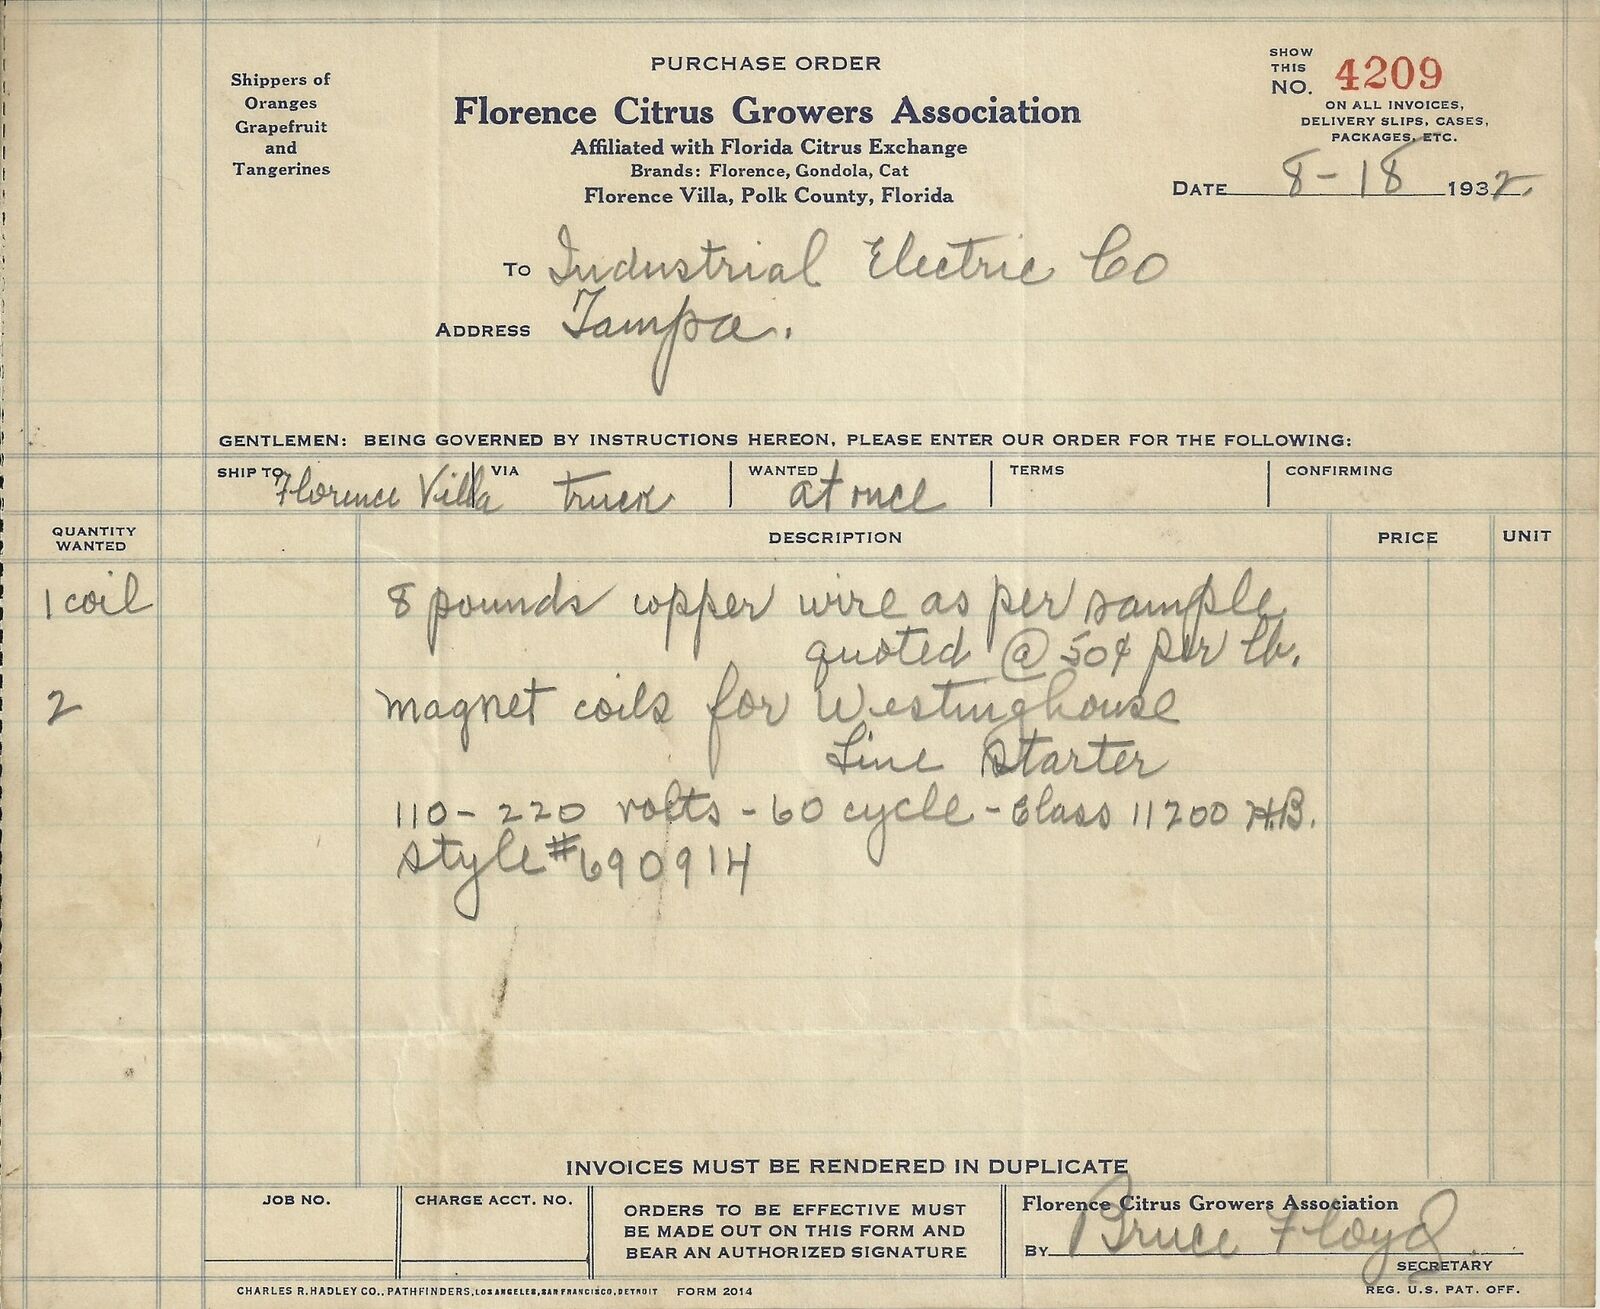 PURCHASE ORDER
Shippers of
Oranges
Grapefruit
and
Tangerines
Florence Citrus Growers Association
Affiliated with Florida Citrus Exchange
Brands: Florence, Gondola, Cat
Florence Villa, Polk County, Florida
SHOW
THIS
NO. 4209
ON ALL INVOICES,
DELIVERY SLIPS, CASES,
PACKAGES, ETC.
DATE 8-18 1932.
TO Industrial Electric Co
ADDRESS Tampa.
GENTLEMEN: BEING GOVERNED BY INSTRUCTIONS HEREON, PLEASE ENTER OUR ORDER FOR THE FOLLOWING:
SHIP TO Florence Villa VIA truck WANTED at once TERMS CONFIRMING
QUANTITY
WANTED
DESCRIPTION PRICE UNIT
1 coil 8 pounds copper wire as per sample
quoted @ 50¢ per lb.
2 magnet coils for Westinghouse
Line Starter
110 - 220 volts - 60 cycle - Class 11200 H.B.
style # 690914
INVOICES MUST BE RENDERED IN DUPLICATE
JOB NO. CHARGE ACCT. NO.
ORDERS TO BE EFFECTIVE MUST
BE MADE OUT ON THIS FORM AND
BEAR AN AUTHORIZED SIGNATURE
Florence Citrus Growers Association
BY Bruce Floyd
SECRETARY
CHARLES R. HADLEY CO., PATHFINDERS, LOS ANGELES, SAN FRANCISCO, DETROIT FORM 2014
REG. U.S. PAT. OFF.